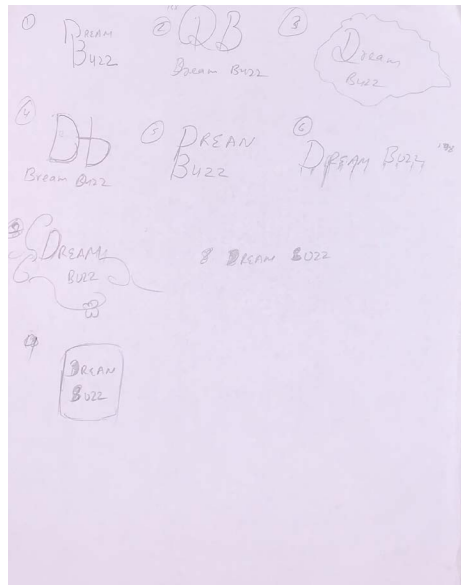 1
Dream
Buzz
2
DB
Dream Buzz
3
Dream
Buzz
4
Db
Dream Buzz
5
DREAM
BUZZ
6
DREAM BUZZ
DREAM
BUZZ
8 DREAM BUZZ
9
DREAM
BUZZ